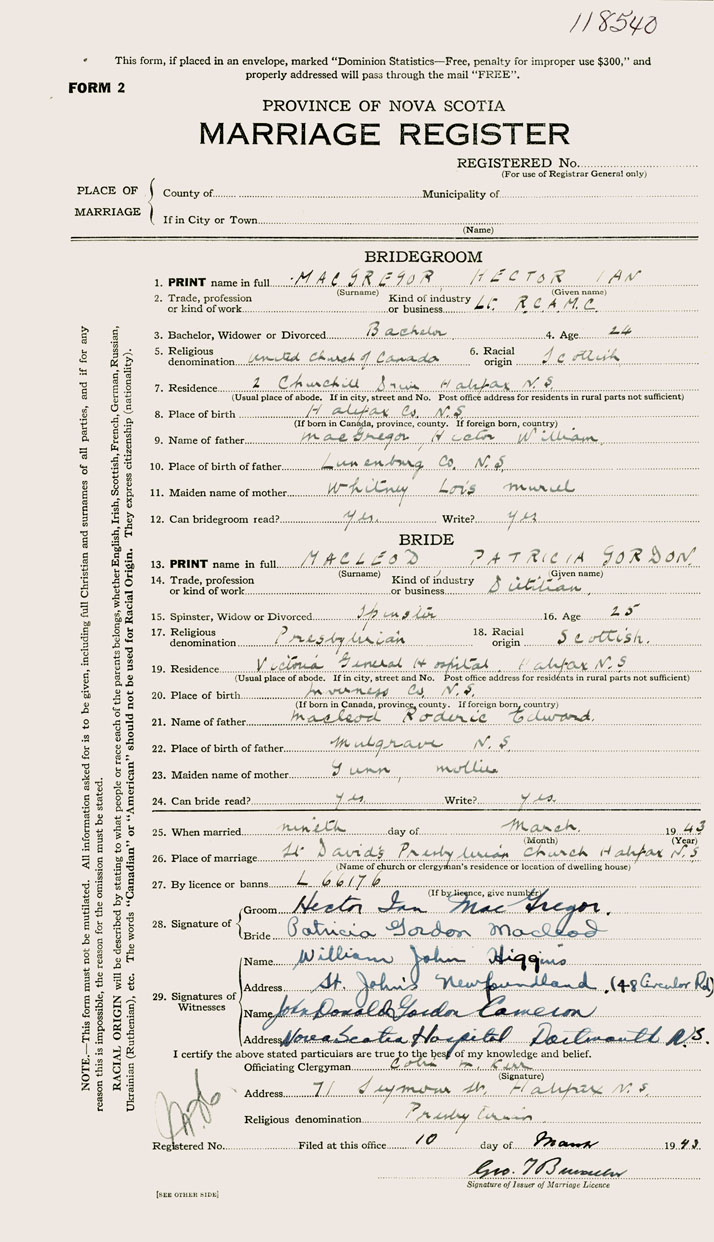 118540
This form, if placed in an envelope, marked "Dominion Statistics—Free, penalty for improper use $300," and
properly addressed will pass through the mail "FREE".
FORM 2
PROVINCE OF NOVA SCOTIA
MARRIAGE REGISTER
REGISTERED No.
(For use of Registrar General only)
PLACE OF MARRIAGE
County of Municipality of
If in City or Town
(Name)
BRIDEGROOM
1. PRINT name in full MACGREGOR HECTOR IAN
(Surname) (Given name)
2. Trade, profession or kind of work Kind of industry or business Lt. R.C.A.M.C.
3. Bachelor, Widower or Divorced Bachelor 4. Age 24
5. Religious denomination United Church of Canada 6. Racial origin Scottish
7. Residence 2 Churchill Drive Halifax N.S.
(Usual place of abode. If in city, street and No. Post office address for residents in rural parts not sufficient)
8. Place of birth Halifax Co. N.S.
(If born in Canada, province, county. If foreign born, country)
9. Name of father MacGregor, Hector William
10. Place of birth of father Lunenburg Co. N.S.
11. Maiden name of mother Whitney Lois Muriel
12. Can bridegroom read? yes. Write? yes
BRIDE
13. PRINT name in full MACLEOD PATRICIA GORDON
(Surname) (Given name)
14. Trade, profession or kind of work Kind of industry or business Dietitian
15. Spinster, Widow or Divorced Spinster 16. Age 25
17. Religious denomination Presbyterian 18. Racial origin Scottish.
19. Residence Victoria General Hospital, Halifax N.S
(Usual place of abode. If in city, street and No. Post office address for residents in rural parts not sufficient)
20. Place of birth Inverness Co. N.S.
(If born in Canada, province, county. If foreign born, country)
21. Name of father Macleod Roderic Edward.
22. Place of birth of father Mulgrave N.S.
23. Maiden name of mother Gunn, Mollie
24. Can bride read? yes. Write? yes.
25. When married nineth day of March. 1943
(Month) (Year)
26. Place of marriage St David's Presbyterian Church Halifax N.S
(Name of church or clergyman's residence or location of dwelling house)
27. By licence or banns L 66176
(If by licence, give number)
28. Signature of
Groom Hector Ian MacGregor.
Bride Patricia Gordon Macleod
29. Signatures of Witnesses
Name William John Higgins
Address St. John's Newfoundland. (48 Circular Rd)
Name John Donald Gordon Cameron
Address Nova Scotia Hospital Dartmouth N.S.
I certify the above stated particulars are true to the best of my knowledge and belief.
Officiating Clergyman Kerr
(Signature)
Address 71 Seymour St. Halifax N.S.
Religious denomination Presbyterian
Registered No. Filed at this office 10 day of March 1943
Geo.
Signature of Issuer of Marriage Licence
[SEE OTHER SIDE]
NOTE.—This form must not be mutilated. All information asked for is to be given, including full Christian and surnames of all parties, and if for any
reason this is impossible, the reason for the omission must be stated.
RACIAL ORIGIN will be described by stating to what people or race each of the parents belongs, whether English, Irish, Scottish, French, German, Russian,
Ukrainian (Ruthenian), etc. The words "Canadian" or "American" should not be used for Racial Origin. They express citizenship (nationality).